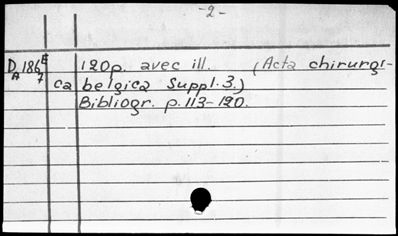 -2-
D 186 E 120p. avec ill. (Acta chirurgi-
A 7 ca belgica Suppl. 3.)
Bibliogr. p. 113-120.